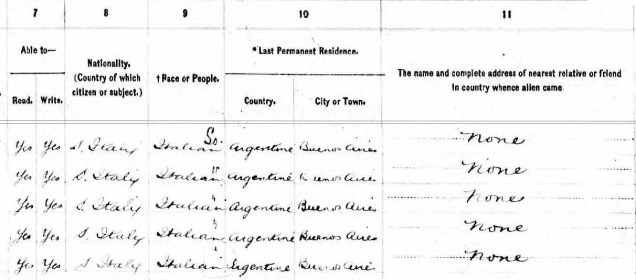 7 8 9 10 11
Able to— Nationality. (Country of which citizen or subject.) †Race or People. *Last Permanent Residence. The name and complete address of nearest relative or friend in country whence alien came
Read. Write. Country. City or Town.
Yes Yes S. Italy Italian So. Argentine Buenos Aires None
Yes Yes S. Italy Italian " Argentine Buenos Aires None
Yes Yes S. Italy Italian " Argentine Buenos Aires None
Yes Yes S. Italy Italian " Argentine Buenos Aires None
Yes Yes S Italy Italian " Argentine Buenos Aires None